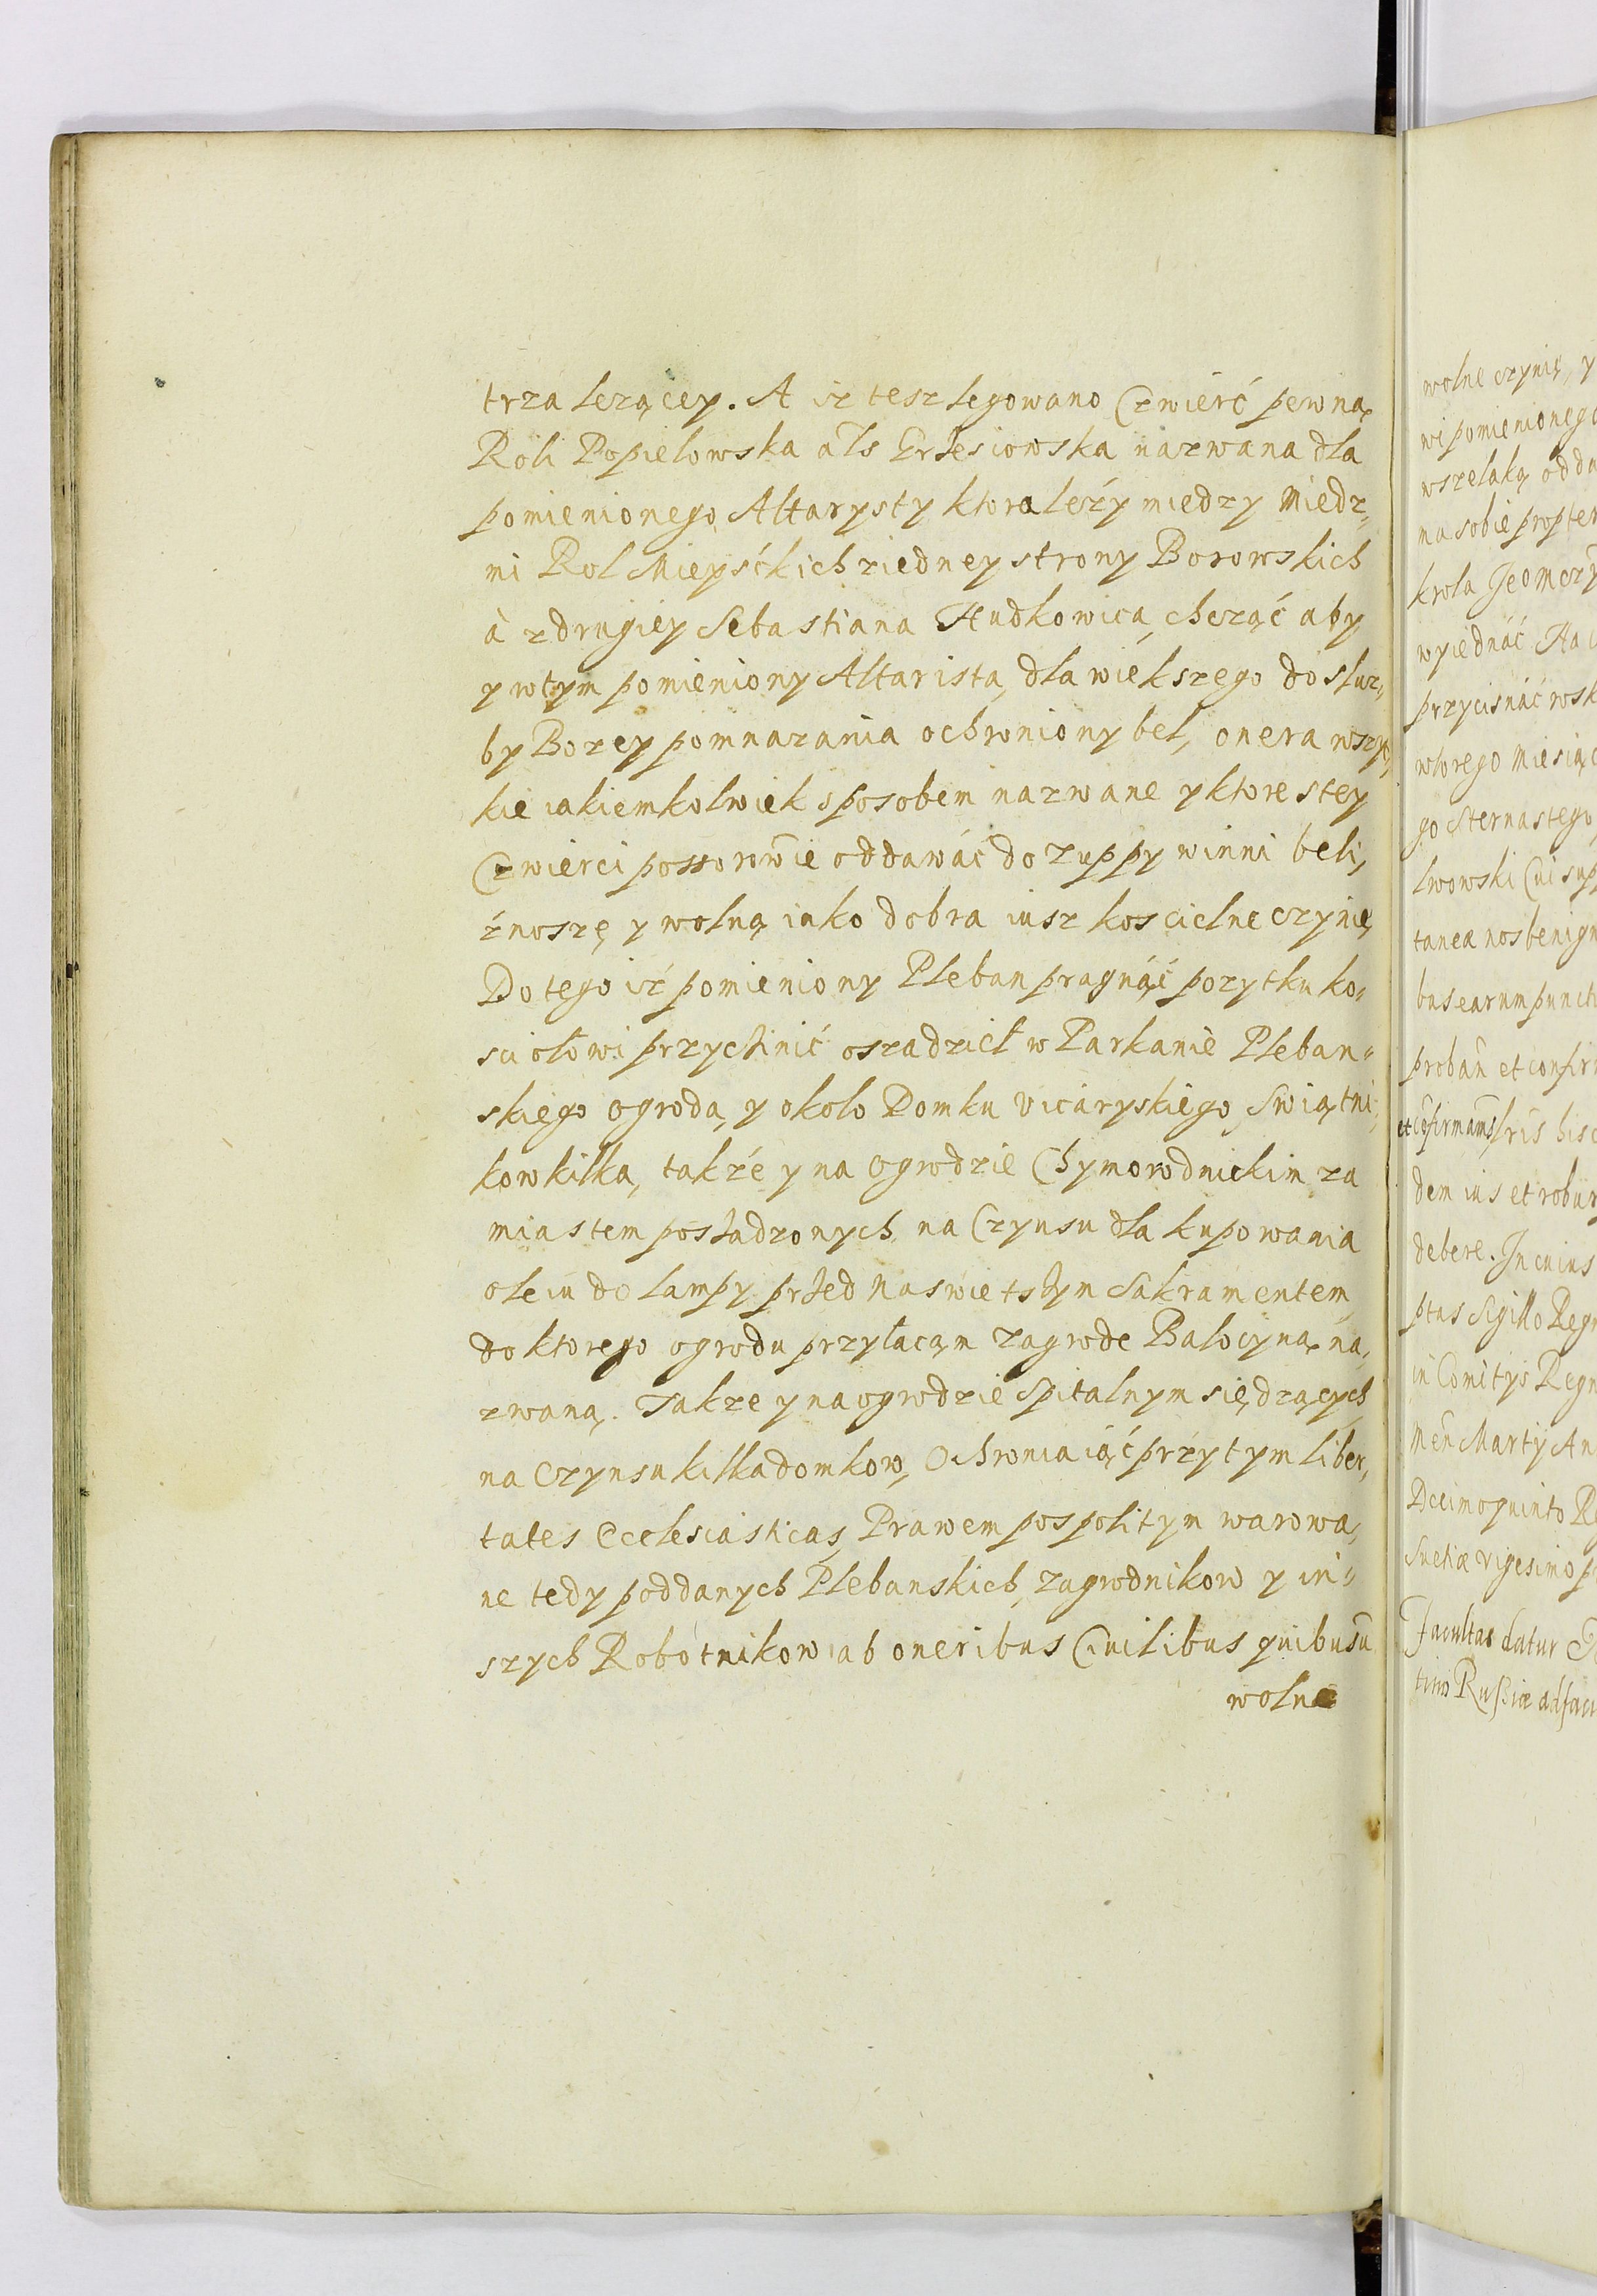 trza lezącey. A iz tesz legowano Czwierć pewną
Roli Popielowska als Grzesiowska nazwana dla
pomienionego Altarysty ktora leży miedzy Miedz„
mi Rol Mieyśćkich ziedney strony Borowskich
à zdrugiey Sebastiana Hudkowica, chcząć aby
y wtym pomieniony Altarista, dla wiekszego do słuz„
by Bozey pomnazania ochroniony bel, onera wszyt„
kie iakiemkolwiek sposobem nazwane y ktore stey
Czwierci possorowie oddawác do Zuppy winni beli,
źnoszę y wolną iako dobra iusz koscielne czynię,
Do tego iź pomieniony Pleban pragnąć pozytku ko„
sciołowi przychinić oszadzieł w Parkanie Pleban„
skiego ogroda, y około Domku Vicaryskiego Swiątni„
kow kilka, takźe y na ogrodzie Chymorodnickim za
miastem poszadzonych na Czynsu dla kupowania
oleiu do lampy przed Naswietszym Sakramentem,
do ktorego ogrodu przyłacąm zagrode Balocyną na„
zwaną. Takze y na ogrodzie Spitalnym siędzących
na Czynsu kilka domkow, Ochroniaiąć przytym liber„
tates Ecclesiasticas, Prawem pospolitym warowa„
ne tedy poddanych Plebanskich, zagrodnikow y in„
szych Robotnikow ab oneribus Ciuilibus quibusu
wolne
wolne czynię, y
wi pomienionego
wszelaką odda
na sobie propter
krola Jeomczy
wyiednáć Na
przycisnáć rosk
wtorego Miesiąc
go Sternastego
lwowski Cui sup
tanea nos benign
bus earum puncti
proban et confir
et cōfirmam̄s hris hisc
dem ius et robur
debere. In cuius
ptas Sigillo Regn
in Comitÿs Regn
Men̄ Martÿ An
Dcimoquinto Re
Suetiæ vigesimo p
Facultas datur
tino Rußiæ ad fac